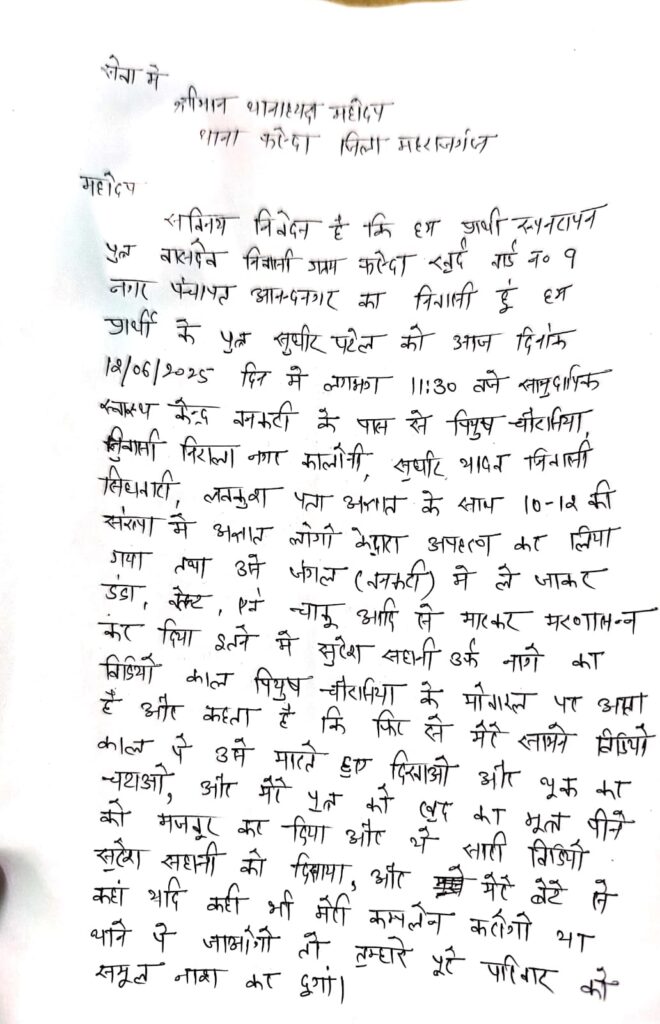 सेवा में
श्रीमान थानाध्यक्ष महोदय
थाना फरेन्दा जिला महराजगंज
महोदय
सविनय निवेदन है कि हम प्रार्थी
पुत्र वासदेव निवासी ग्राम फरेन्दा खुर्द वार्ड न० 9
नगर पंचायत आनन्दनगर का निवासी हूं हम
प्रार्थी के पुत्र सुधीर पटेल को आज दिनांक
12/06/2025 दिन में लगभग 11:30 बजे सामुदायिक
स्वास्थ केन्द्र बनकटी के पास से पियुष चौरासिया,
निवासी निराला नगर कालोनी, सुधीर यादव निवासी
लवकुश पता अज्ञात के साथ 10-12 की
संख्या में अज्ञात लोगो केद्वारा अपहरण कर लिया
गया तथा उसे जंगल (बनकटी) में ले जाकर
डंडा, बेल्ट, एवं चाकू आदि से मारकर मरणासन्न
कर दिया इतने में सुरेश सहानी उर्फ नागे का
विडियो काल पियुष चौरासिया के मोबाइल पर आता
है और कहता है कि फिर से मेरे सामने विडियो
काल पे उसे मारते हुए दिखाओ और थूक कर
चटाओ, और मेरे पुत्र को खुद का मूत्र पीने
को मजबूर कर दिया और ये सारी विडियो
सुरेश सहानी को दिखाया, और मेरे बेटे से
कहां यदि कही भी मेरी कम्पलेन करोगो या
थाने पे जाओगो तो तुम्हारे पूरे परिवार को
समूल नाश कर दूगां।